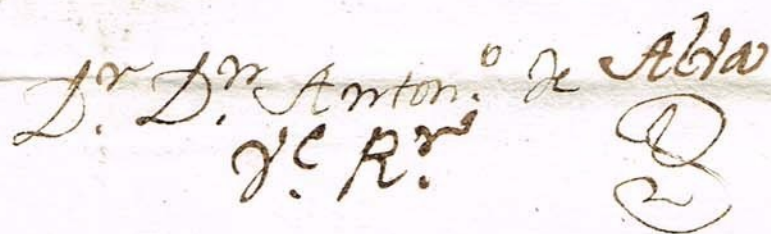 Dr. Dn. Anton.o de Alva
Vc. Rr.